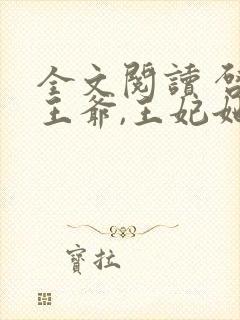 全文閱讀 啓
王爺,王妃她
寶拉